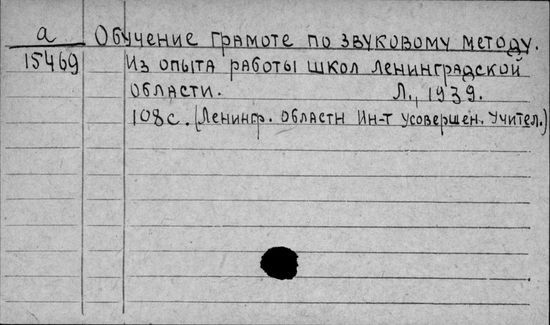 а Обучение грамоте по звуковому методу.
15469 Из опыта работы школ Ленинградской
области. Л., 1939.
108с. (Ленингр. области Ин-т усовершен. Учител.)